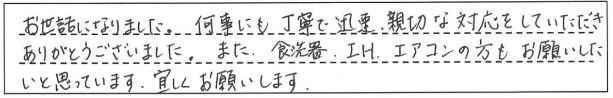 お世話になりました。何事にも丁寧で迅速、親切な対応をしていただき
ありがとうございました。また、食洗器、IH、エアコンの方もお願いした
いと思っています。宜しくお願いします。